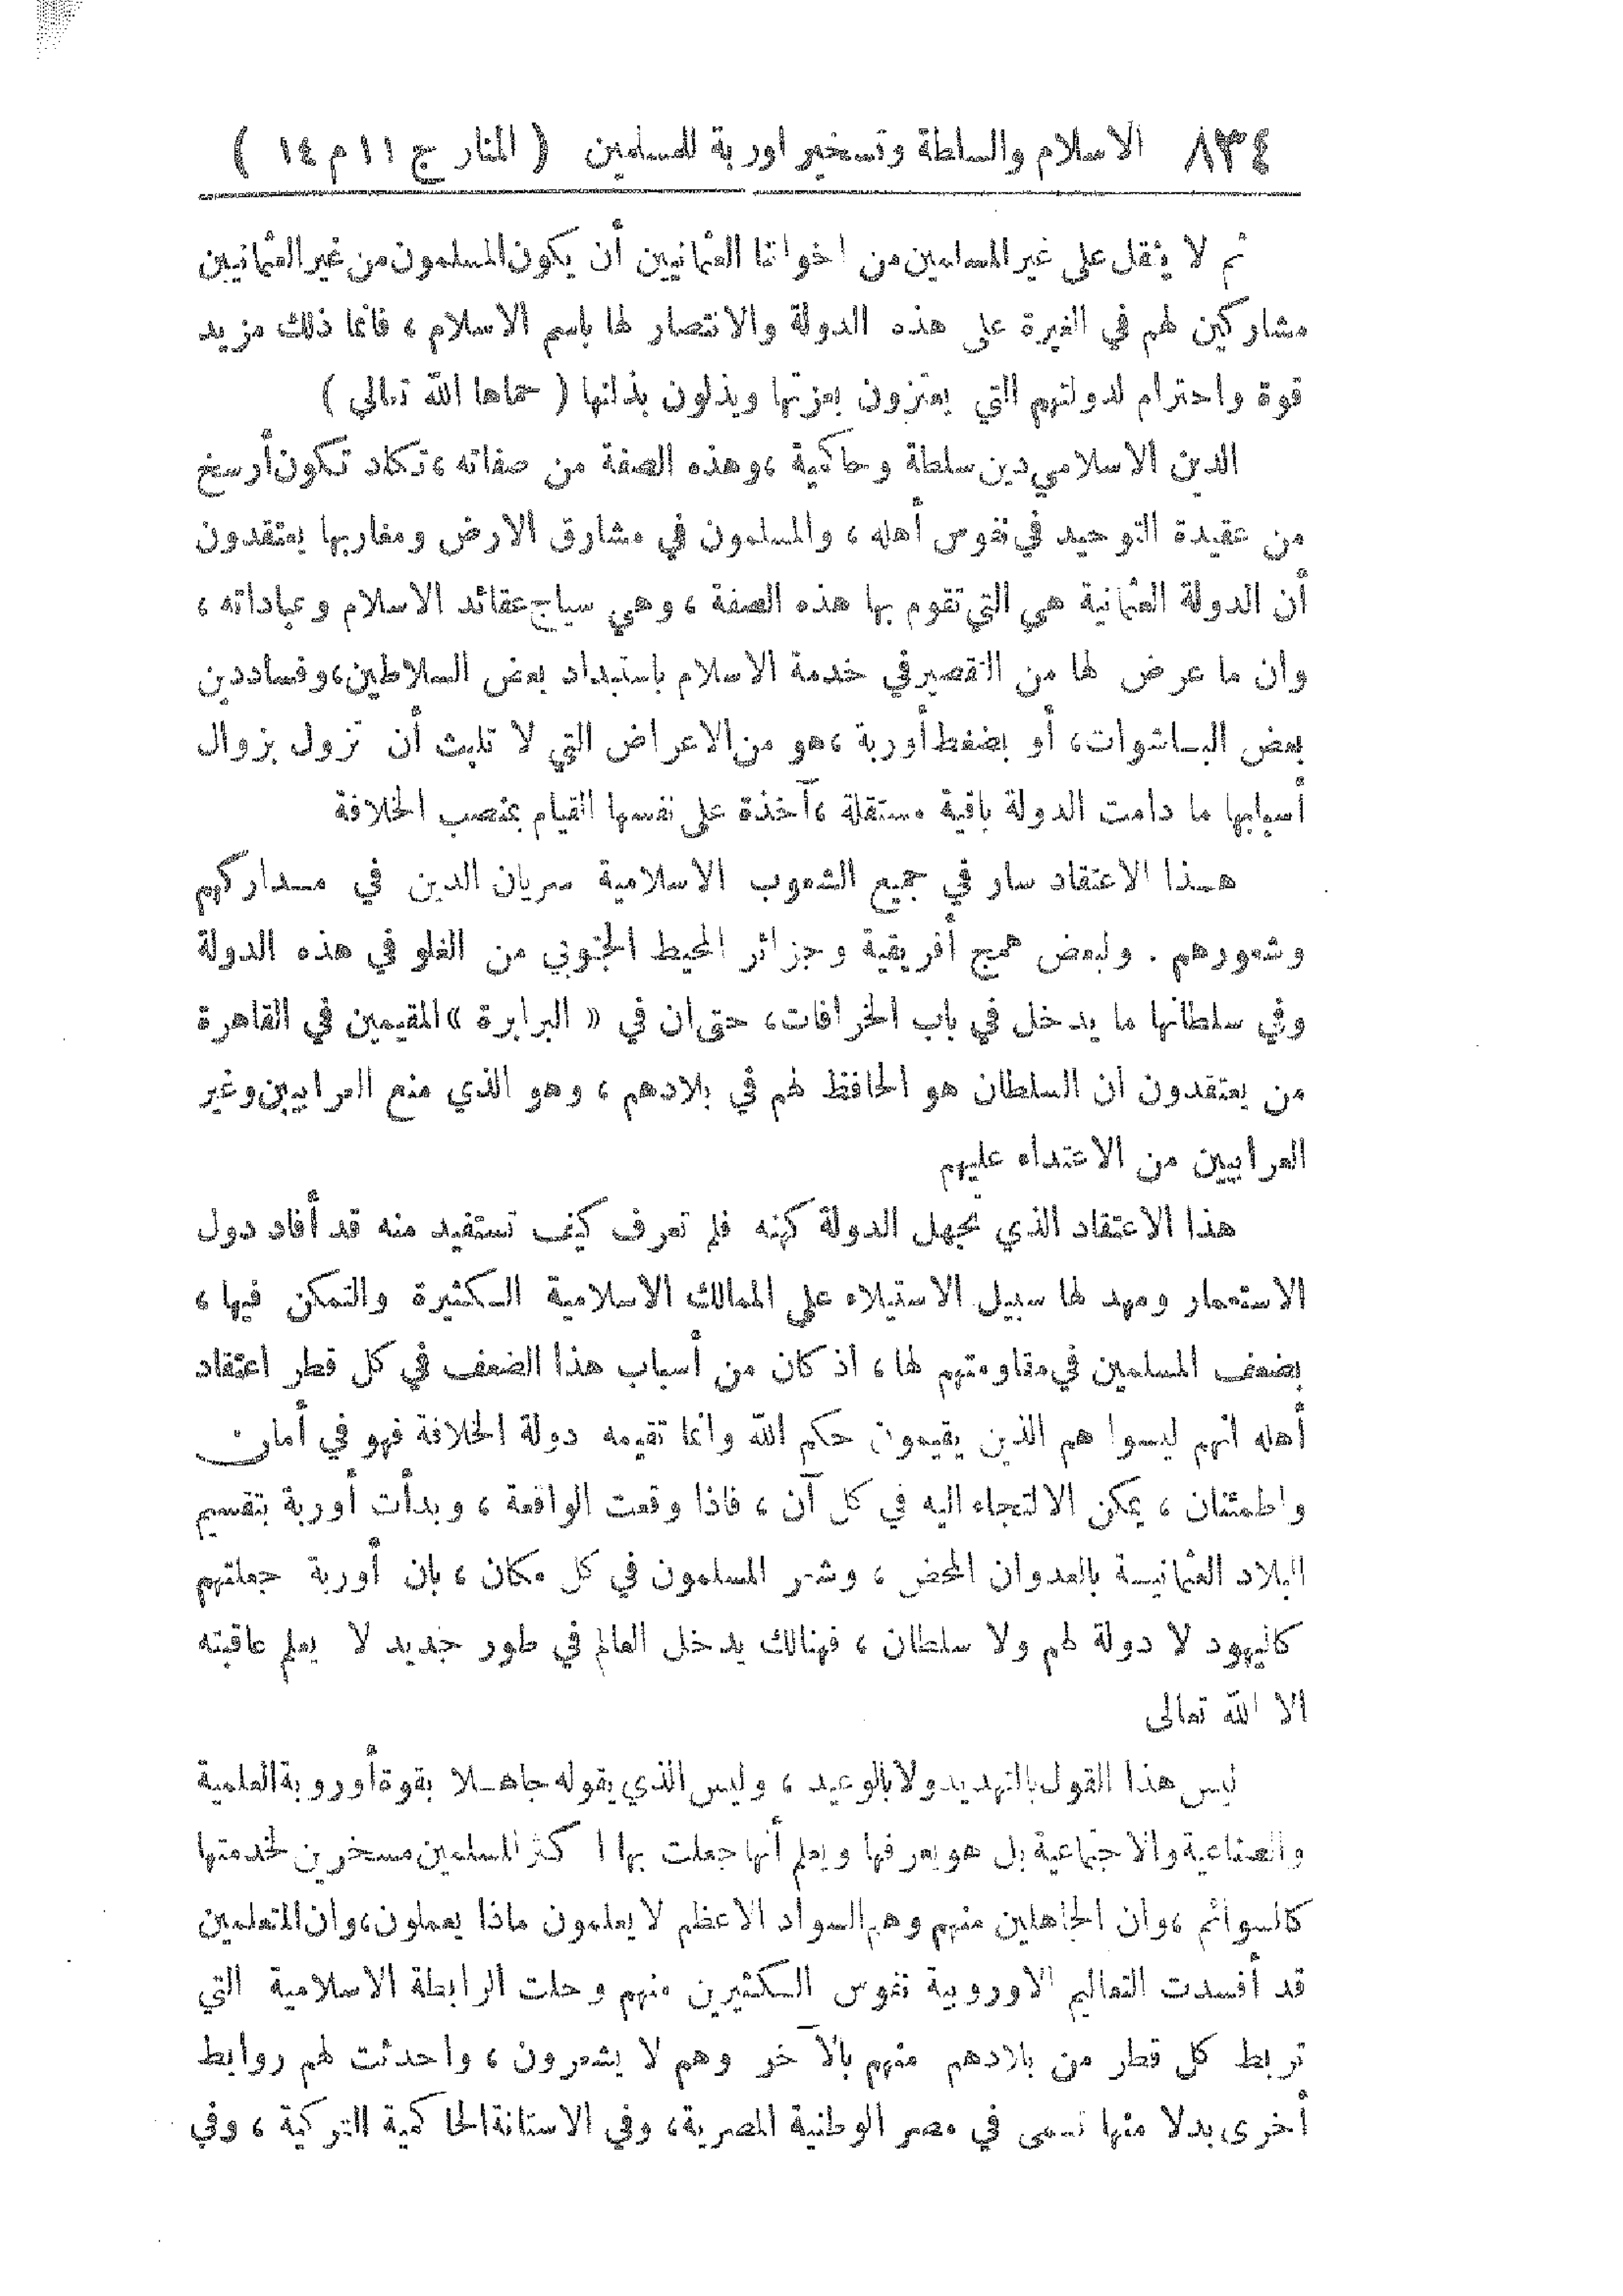 ٨٣٤ الاسلام والسلطة وتسخير اوربة للمسلمين ( المنار ج ١١ م ١٤ )
ثم لا يثقل على غير المسلمين من اخواننا العثمانيين أن يكون المسلمون من غير العثمانيين
مشاركين لهم في الغيرة على هذه الدولة والانتصار لها باسم الاسلام ، فانما ذلك مزيد
قوة واحترام لدولتهم التي يعتزون بعزتها ويذلون بذلتها ( حماها الله تعالى )
الدين الاسلامي دين سلطة وحاكمية ، وهذه الصفة من صفاته ، تكاد تكون أرسخ
من عقيدة التوحيد في نفوس أهله ، والمسلمون في مشارق الارض ومغاربها يعتقدون
أن الدولة العثمانية هي التي تقوم بها هذه الصفة ، وهي سياج عقائد الاسلام وعباداته ،
وان ما عرض لها من التقصير في خدمة الاسلام باستبداد بعض السلاطين ، وفساد دين
بعض الباشوات ، أو بضغط أوربة ، هو من الاعراض التي لا تلبث أن تزول بزوال
أسبابها ما دامت الدولة باقية مستقلة ، آخذة على نفسها القيام بمنصب الخلافة
هذا الاعتقاد سار في جميع الشعوب الاسلامية سريان الدين في مداركهم
وشعورهم . ولبعض همج أفريقية وجزائر المحيط الجنوبي من الغلو في هذه الدولة
وفي سلطانها ما يدخل في باب الخرافات ، حتى ان في « البرابرة » المقيمين في القاهرة
من يعتقدون ان السلطان هو الحافظ لهم في بلادهم ، وهو الذي منع العرابيين وغير
العرابيين من الاعتداء عليهم
هذا الاعتقاد الذي تجهل الدولة كنهه فلم تعرف كيف تستفيد منه قد أفاد دول
الاستعمار ومهد لها سبيل الاستيلاء على الممالك الاسلامية الكثيرة والتمكن فيها ،
بضعف المسلمين في مقاومتهم لها ، اذ كان من أسباب هذا الضعف في كل قطر اعتقاد
أهله انهم ليسوا هم الذين يقيمون حكم الله وانما تقيمه دولة الخلافة فهو في أمان
واطمئنان ، يمكن الالتجاء اليه في كل آن ، فاذا وقعت الواقعة ، وبدأت أوربة بتقسيم
البلاد العثمانية بالعدوان المحض ، وشعر المسلمون في كل مكان ، بان أوربة جعلتهم
كاليهود لا دولة لهم ولا سلطان ، فهنالك يدخل العالم في طور جديد لا يعلم عاقبته
الا الله تعالى
ليس هذا القول بالتهديد ولا بالوعيد ، وليس الذي يقوله جاهلا بقوة أوروبة العلمية
والصناعية والاجتماعية بل هو يعرفها ويعلم أنها جعلت بها اكثر المسلمين مسخرين لخدمتها
كالسوائم ، وان الجاهلين منهم وهم السواد الاعظم لا يعلمون ماذا يعملون ، وان المتعلمين
قد أفسدت التعاليم الاوروبية نفوس الكثيرين منهم وحلت الرابطة الاسلامية التي
تربط كل قطر من بلادهم منهم بالآخر وهم لا يشعرون ، واحدثت لهم روابط
أخرى بدلا منها تسمى في مصر الوطنية المصرية ، وفي الاستانة الحاكمية التركية ، وفي